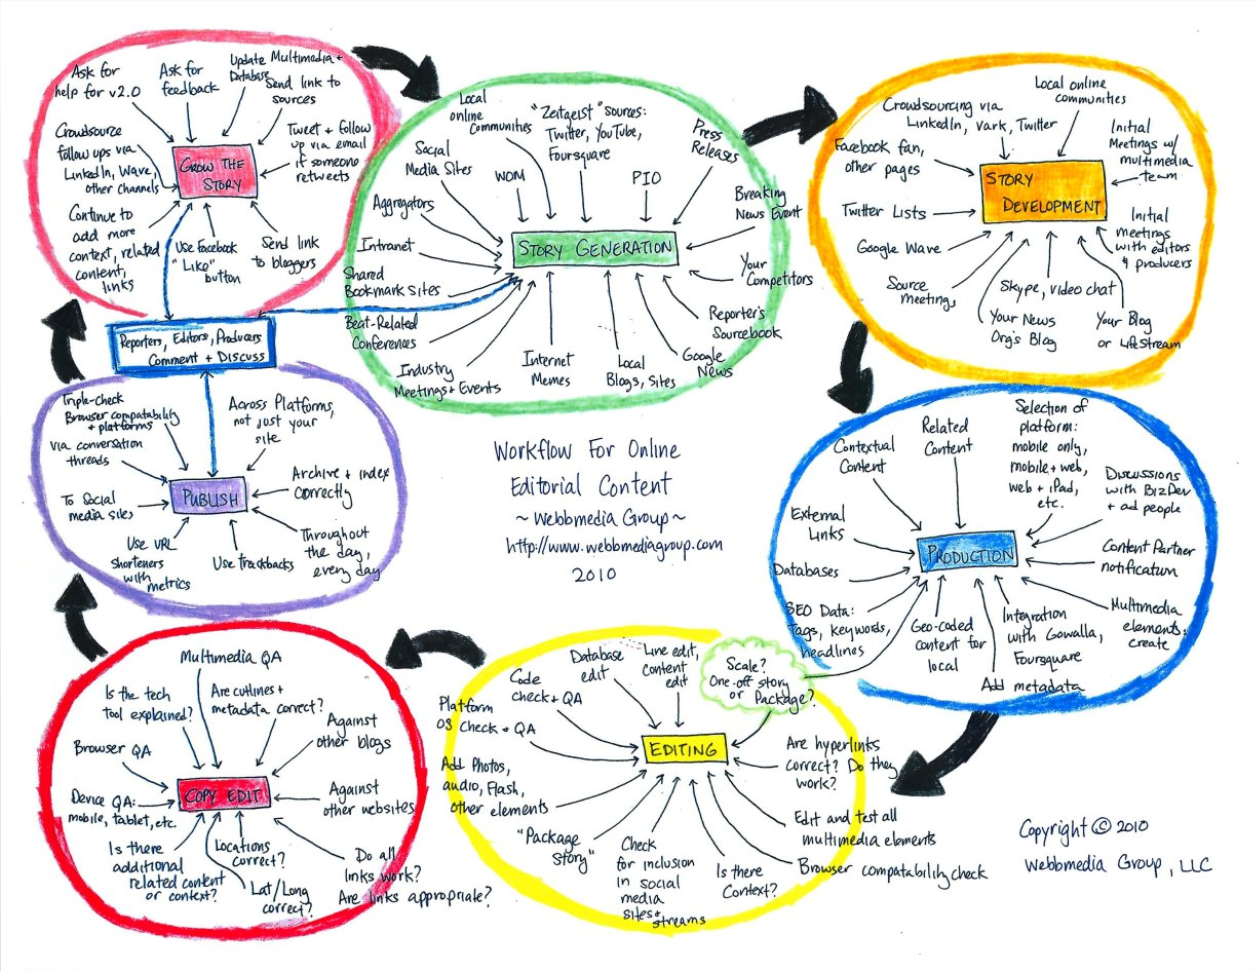 Ask for
help for v2.0
Ask for
feedback
Update Multimedia +
Database
Send link to
sources
Crowdsource
follow ups via
LinkedIn, Wave,
other channels
Tweet + follow
up via email
if someone
retweets
GROW THE
STORY
Continue to
add more
context, related
content,
links
Use Facebook
"Like"
button
Send link
to bloggers
Local
online
communities
"Zeitgeist" sources:
Twitter, YouTube,
Foursquare
Press
Releases
Social
Media Sites
WOM
PIO
Aggregators
Breaking
News Event
Intranet
STORY GENERATION
Shared
Bookmark Sites
Your
Competitors
Beat-Related
Conferences
Reporter's
Sourcebook
Industry
Meetings + Events
Internet
Memes
Local
Blogs, Sites
Google
News
Crowdsourcing via
LinkedIn, Vark, Twitter
Local online
communities
Facebook fan,
other pages
Initial
Meetings w/
multimedia
team
STORY
DEVELOPMENT
Twitter Lists
Google Wave
Initial
meetings
with editors
& producers
Source
Meetings
Skype, video chat
Your News
Org's Blog
Your Blog
or LifeStream
Reporters, Editors, Producers
Comment + Discuss
Triple-check
Browser compatability
+ platforms
Across Platforms,
not just your
site
via conversation
threads
Archive + index
correctly
PUBLISH
To Social
media sites
Use URL
shorteners
with metrics
Use Trackbacks
Throughout
the day,
every day
Workflow For Online
Editorial Content
~ Webbmedia Group ~
http://www.webbmediagroup.com
2010
Contextual
Content
Related
Content
Selection of
platform:
mobile only,
mobile + web,
web + iPad,
etc.
Discussions
with BizDev
+ ad people
External
Links
PRODUCTION
Content Partner
notification
Databases
SEO Data:
Tags, keywords,
headlines
Geo-coded
content for
local
Integration
with Gowalla,
Foursquare
Multimedia
elements:
create
Add metadata
Multimedia QA
Is the tech
tool explained?
Are cutlines +
metadata correct?
Against
other blogs
Browser QA
COPY EDIT
Device QA:
mobile, tablet, etc.
Against
other websites
Is there
additional
related content
or context?
Locations
correct?
Lat/Long
correct?
Do all
links work?
Are links appropriate?
Database
edit
Line edit,
content
edit
Scale?
One-off story
or Package?
Code
check + QA
Platform
OS Check + QA
EDITING
Are hyperlinks
correct? Do they
work?
Add Photos,
audio, Flash,
other elements
"Package
Story"
Check
for inclusion
in social
media
sites +
streams
Is there
Context?
Edit and test all
multimedia elements
Browser compatability check
Copyright © 2010
Webbmedia Group, LLC